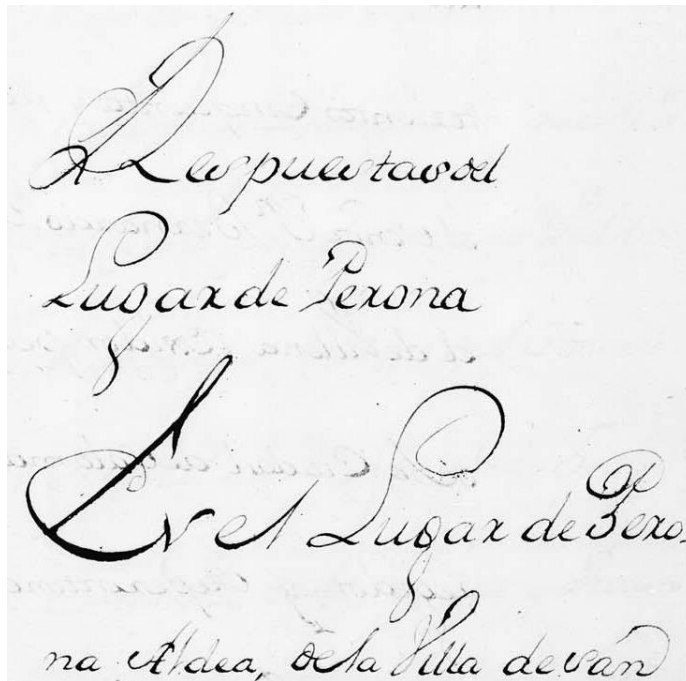 Respuestas del
Lugar de Perona
En el Lugar de Pero
na Aldea, de la Villa de San